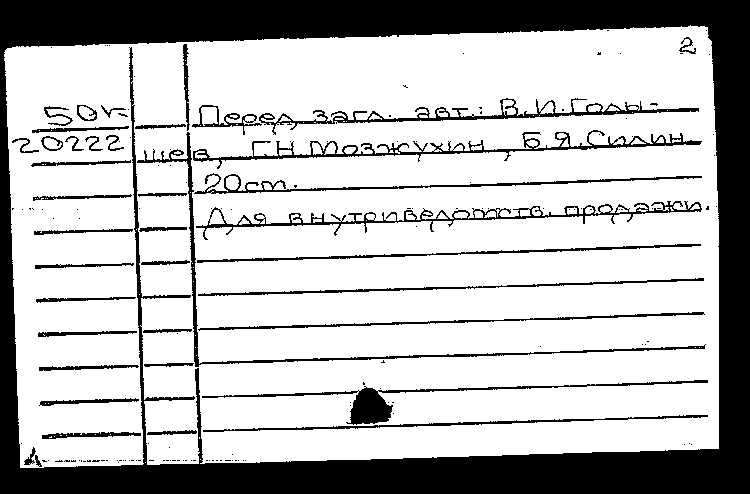 2
50к Перед загл. авт.: В.И.Голы-
20222 шев, Г.Н.Мозжухин, Б.Я.Силин.
20см.
Для внутриведомств. продажи.